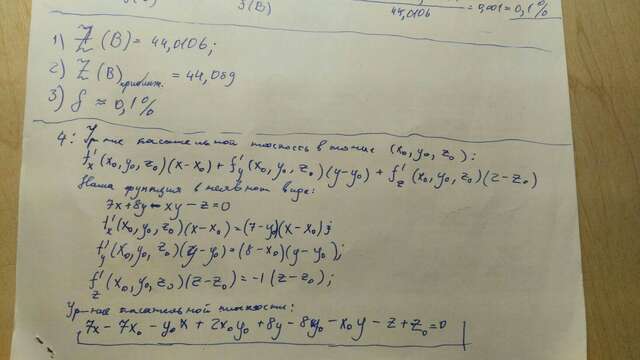 3 (B) 44,0106 = 0,001 = 0,1%
1) Z (B) = 44,0106;
2) Z (B)приближ. = 44,089
3) δ ≈ 0,1%
4: Ур-ние касательной плоскость в точке (x₀, y₀, z₀):
f'ₓ(x₀, y₀, z₀)(x-x₀) + f'y(x₀, y₀, z₀)(y-y₀) + f'z(x₀, y₀, z₀)(z-z₀)
Наша функция в неявном виде:
7x+8y-xy-z=0
f'ₓ(x₀, y₀, z₀)(x-x₀)=(7-y₀)(x-x₀);
f'y(x₀, y₀, z₀)(y-y₀)=(8-x₀)(y-y₀);
f'z(x₀, y₀, z₀)(z-z₀)=-1(z-z₀);
Ур-ние касательной плоскости:
7x-7x₀-y₀x+2x₀y₀+8y-8y₀-x₀y-z+z₀=0